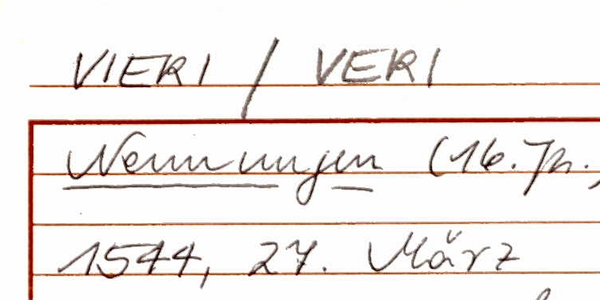 VIERI / VERI
Nennungen (16. Jh.,
1544, 27. März